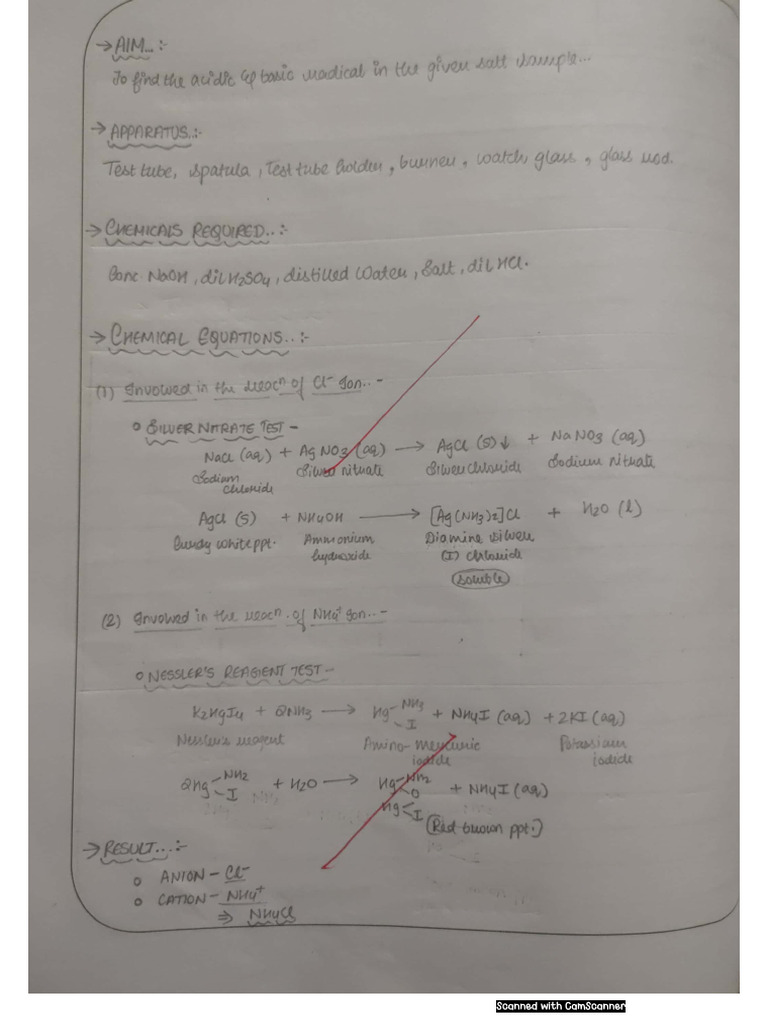 → AIM...:-
To find the acidic & basic radical in the given salt sample...
→ APPARATUS..:-
Test tube, spatula, Test tube holder, burner, watch glass, glass rod.
→ CHEMICALS REQUIRED..:-
Conc NaOH, dil H2SO4, distilled water, Salt, dil HCl.
→ CHEMICAL EQUATIONS..:-
(1) Involved in the reacn of Cl- Ion..-
o SILVER NITRATE TEST -
NaCl (aq) + AgNO3 (aq) → AgCl (s)↓ + NaNO3 (aq)
Sodium chloride Silver nitrate Silver chloride Sodium nitrate
AgCl (s) + NH4OH → [Ag(NH3)2]Cl + H2O (l)
Curdy white ppt. Ammonium hydroxide Diamine silver (I) chloride
Soluble
(2) Involved in the reacn. of NH4+ Ion..-
o NESSLER'S REAGENT TEST -
K2HgI4 + 2NH3 → Hg NH3 I + NH4I (aq) + 2KI (aq)
Nessler's reagent Amino-mercuric iodide Potassium iodide
2Hg NH2 I + H2O → Hg NH2 O Hg I + NH4I (aq)
(Red brown ppt.)
→ RESULT...:-
o ANION - Cl-
o CATION - NH4+
⇒ NH4Cl
Scanned with CamScanner